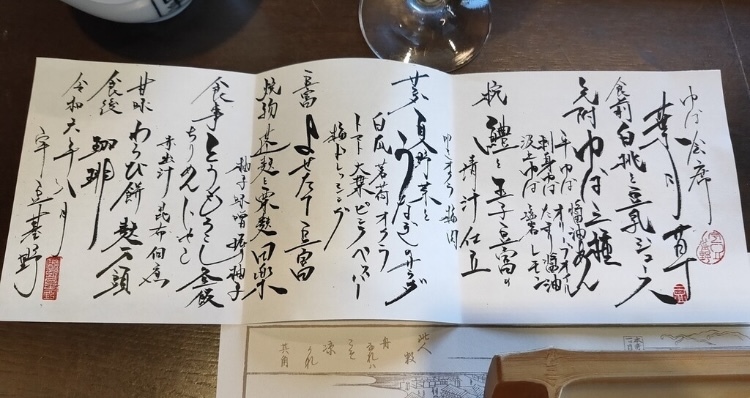 ゆば会席
葉月 草
食前 白桃と豆乳ジュース
先附 ゆば三種
平ゆば 醤油あん
刺身ゆば たまり醤油
汲上ゆば 塩 レモン
椀 鱧と玉子豆富の
清汁仕立
オクラ 梅肉
菜 夏野菜とうなぎのサラダ
白瓜 茗荷 オクラ
トマト 大葉 ピンクペッパー
梅ドレッシング
豆富 よせたて豆富
焼物 蓬麩と粟麩田楽
柚子味噌 振り柚子
食事 とうもろこし釜飯
ちりめんじゃこ
赤出汁 昆布佃煮
甘味 わらび餅 麩万頭
食後 珈琲
令和六年八月